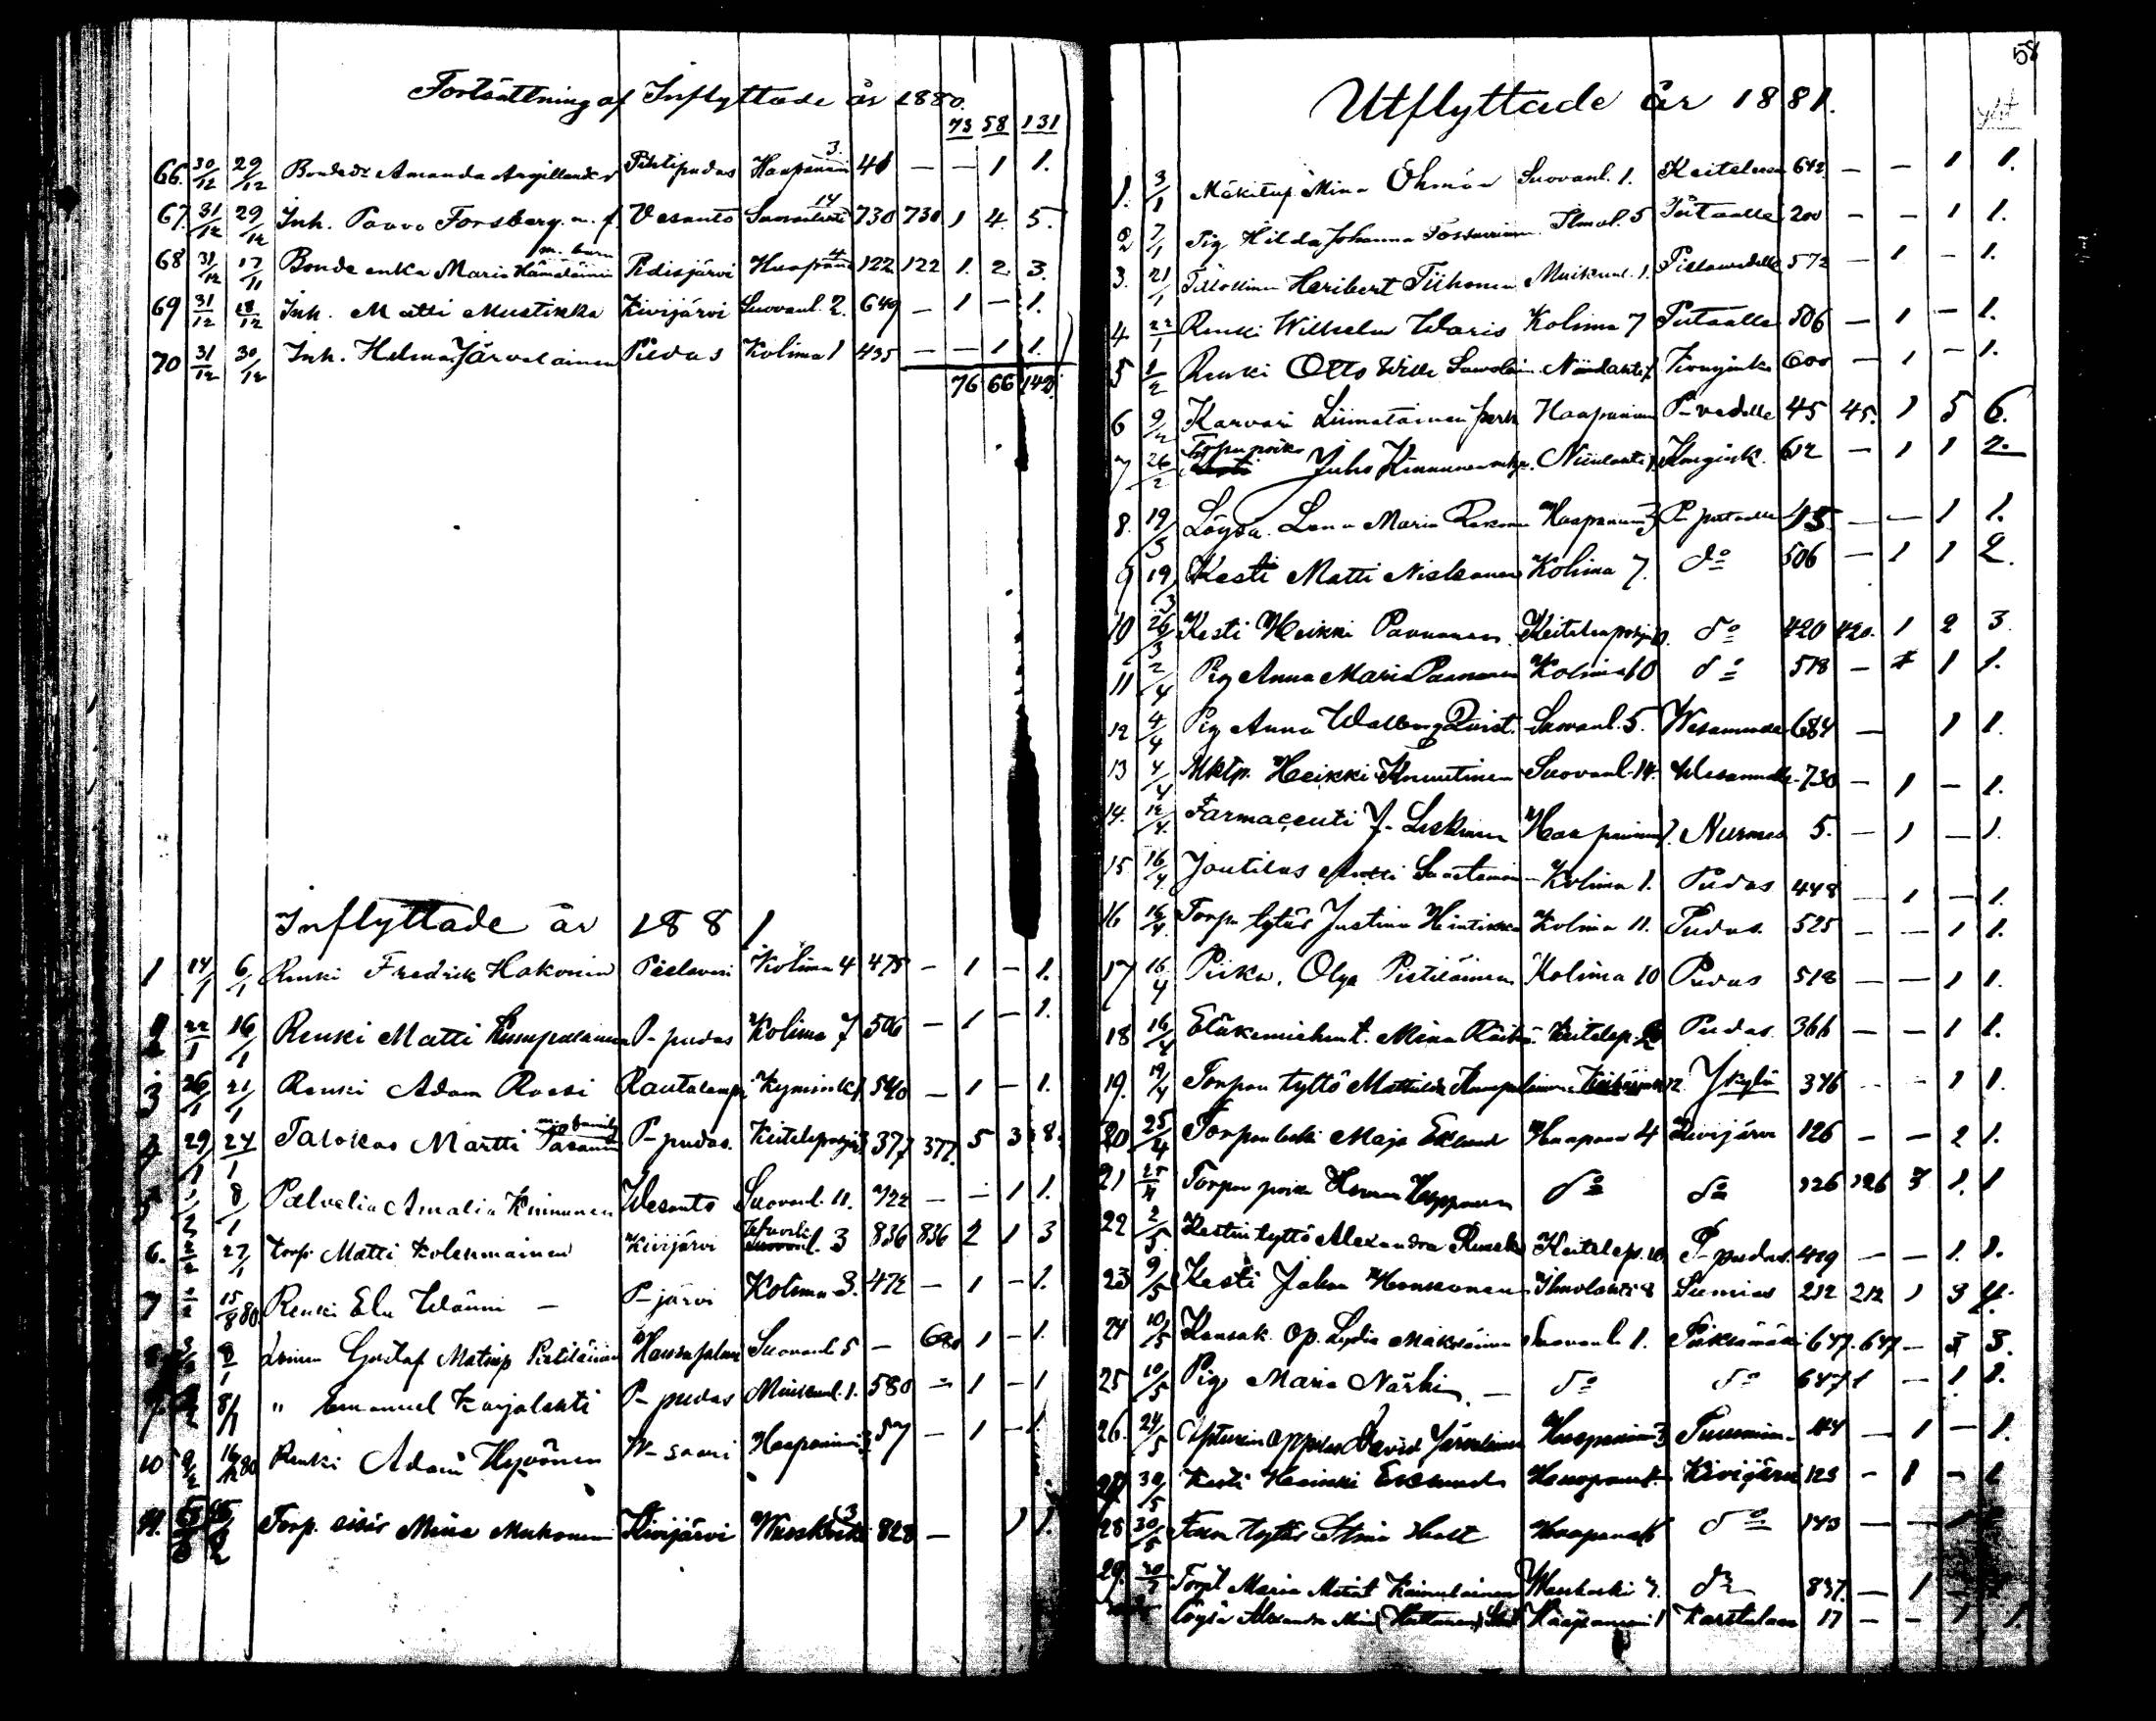 Fortsättning af Inflyttade år 1880.
73 58 131
66. 30/12 29/12 Bondedr Amanda Argillander Pihtipudas Haapaniemi 3. 41 — — 1 1.
67. 31/12 29/12 Inh. Paavo Forsberg m. f. Vesanto Suovanlahti 14 730 730 1 4 5.
68 31/12 17/11 Bonde enka Maria Hämäläinen m. barn Pidisjärvi Haapan 4 122 122 1. 2 3.
69 31/12 28/12 Inh. Matti Mustikka Kivijärvi Suovanl. 2. 649 — 1 — 1.
70 31/12 30/12 Inh. Helma Järveläinen Pudas Kolima 1 435 — — 1 1.
76 66 142.
Inflyttade år 1881
1 14/1 6/1 Renki Fredrik Hakonen Pielavesi Kolima 4 475 — 1 — 1.
2 22/1 16/1 Renki Matti Kumpulainen P-pudas Kolima 7 506 — 1 — 1.
3 26/1 21/1 Renki Adam Rossi Rautalampi Kyminki 540 — 1 — 1.
4 29/1 24/1 Talokas Martti Pasanen P-pudas. Keitelepohja 377 377. 5 3 8.
5 8/1 Palvelia Amalia Kinnunen Wesanto Suovanl. 11. 722 — — 1 1.
6. 2/2 27/1 torp. Matti Kolehmainen Kivijärvi l. 3 836 836 2 1 3
7 2/2 15/8 80. Renki Elu Wänni — P-järvi Kolima 3. 472 — 1 — 1.
8 8/1 Loinen Gustaf Matinp Pietiläinen Hankasalmi Suovanl 5 — 680 1 — 1.
9. 8/1 " Emanuel Karjalahti P-pudas Muikunl. 1. 580 — 1 — 1
10 9/2 16/12 80 Renki Adam Hyvönen W-saari Haapaniemi 3 57 — 1 — 1.
11. Torp. sisär Miina Muhonen Kivijärvi Wuoskoski 3 828 — 1 1.
58
Utflyttade år 1881.
1. 3/1 Mäkitup. Mina Öhman Suovanl. 1. Keiteleen 642. — — 1 1.
2 7/1 Pig Hilda Johanna Tossavainen Ilmol. 5 Putaalle 200 — — 1 1.
3. 21/1 Tilallinen Heribert Tiihonen Muikunl. 1. Pielavedelle 572 — 1 — 1.
4 22/1 Renki Wilhelm Waris Kolima 7 Putaalle 506 — 1 — 1.
5 2/2 Renki Otto Wille Savolain Niinilahti Konginka 600 — 1 — 1.
6 9/2 Karvari Liimatainen perh Haapaniemi P-vedelle 45 45. 1 5 6.
7 26/2 Torpanpoika Juho Kinnunen Niinilahti Kongink. 612 — 1 1 2.
8. 19/3 Löysä. Lena Maria Haapaniemi 3 P-putaalle 45 — — 1 1.
9 19/3 Kesti Matti Niskanen Kolima 7. do 506 — 1 1 2.
10 26/3 Kesti Heikki Paananen Keitelepohja 10. do 420 420. 1 2 3.
11 2/4 Pig Anna Maria Paananen Kolima 10 do 518 — 1 1.
12 4/4 Pig Anna Walborg Qvist. Suovanl. 5. Wesannolle 684 — 1 1.
13 4/4 Mktp. Heikki Knuutinen Suovanl. 14. Wesannolle 730 — 1 — 1.
14. 12/4 Farmaceuti J. Leskinen Haapaniemi 7. Nurmes 5. — 1 — 1.
15 16/4 Joutilas Antti Saastamoin Kolima 1. Pudas 448 — 1 — 1.
16 16/4 Torpn tytär Justina Hintikka Kolima 11. Pudas. 525 — — 1 1.
17 16/4 Piika. Olga Pietiläinen Kolima 10 Pudas 518 — — 1 1.
18 16/4 Eläkemiehen t. Mina Räihä Keitelep. Pudas. 366 — — 1 1.
19. 19/4 Torpan tyttö Mathilda Kumpulainen 12. Ykylä 376 — — 1 1.
20 25/4 Torpan leski Maja Eklund Haapan 4 Kivijärvi 126 — — 2 1.
21 25/4 Torpan poika Herman Hepponen do do 126 126 3 1. 1
22 2/5 Kestin tyttö Alexandra Keitelep. 10. P-pudas. 419 — — 1. 1.
23 9/5 Kesti Johan Honkonen Ilmolahti 8 Sumias 212 212 1 3 4.
24 10/5 Kansak. Op. Lydia Mäkeläinen Suovanl. 1. Pieksämäki 647. 647 — 3 3.
25 10/5 Pig Maria Närhi — do do 647 — 1 1.
26. 24/5 Apteekin oppilas David Järveläinen Haapaniemi 3 114 — 1 — 1.
27 30/5 Kesti Heinriki Eklund Haapan Kivijärvi 123 — 1 — 1
28 30/5 tytär Stina Hult Haapan 6 do 143 — — 1
29. Torpl Maria Matint Kainulainen Wuoskoski 7. do 837. — 1 —
Löysä Alexandra Mina Haapaniemi 1 Karstulaan 17 — — 1 1.